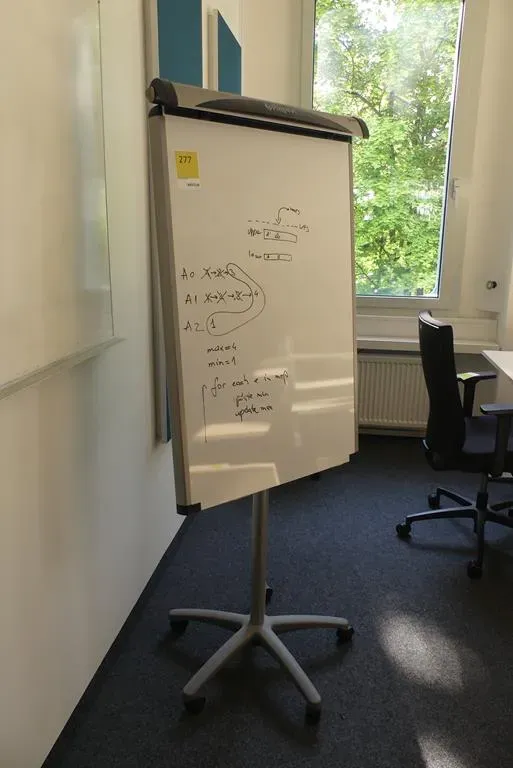 277
upper
lower
A0 X→X→3
A1 X→X→X→4
A2 1
max=4
min=1
for each e in map
update min
update max